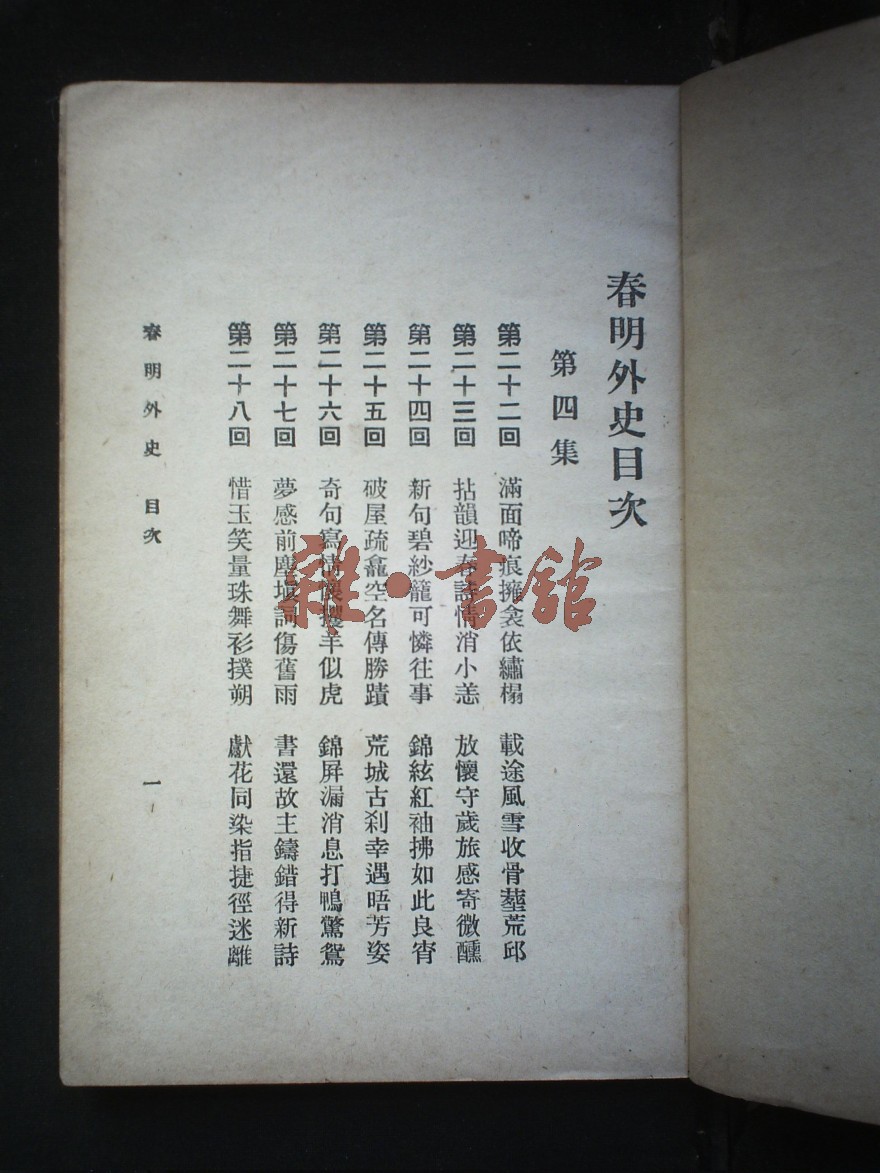 春明外史目次
第四集
第二十二回 滿面啼痕擁衾依繡榻 載途風雪收骨葬荒邱
第二十三回 拈韻迎春詩情消小恙 放懷守歲旅感寄微醺
第二十四回 新句碧紗籠可憐往事 錦絃紅袖拂如此良宵
第二十五回 破屋疏龕空名傳勝蹟 荒城古刹幸遇晤芳姿
第二十六回 奇句寫情懷攫羊似虎 錦屏漏消息打鴨驚鴛
第二十七回 夢感前塵塡詞傷舊雨 書還故主鑄錯得新詩
第二十八回 惜玉笑量珠舞衫撲朔 獻花同染指捷徑迷離
春明外史 目次
一
雜·書舘